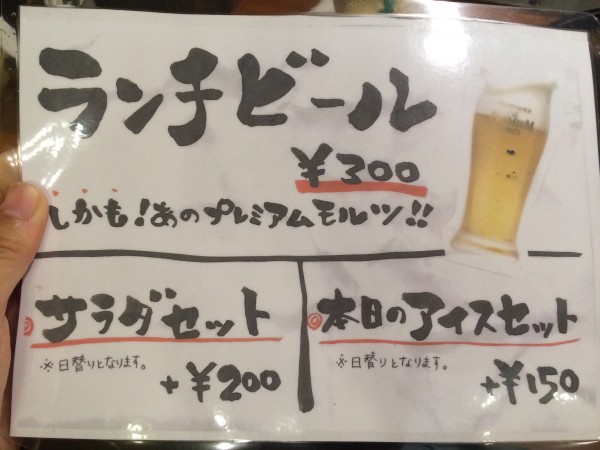 ランチビール
¥300
しかも！あのプレミアムモルツ!!
◎サラダセット
※日替りとなります。
+¥200
◎本日のアイスセット
※日替りとなります。
+¥150